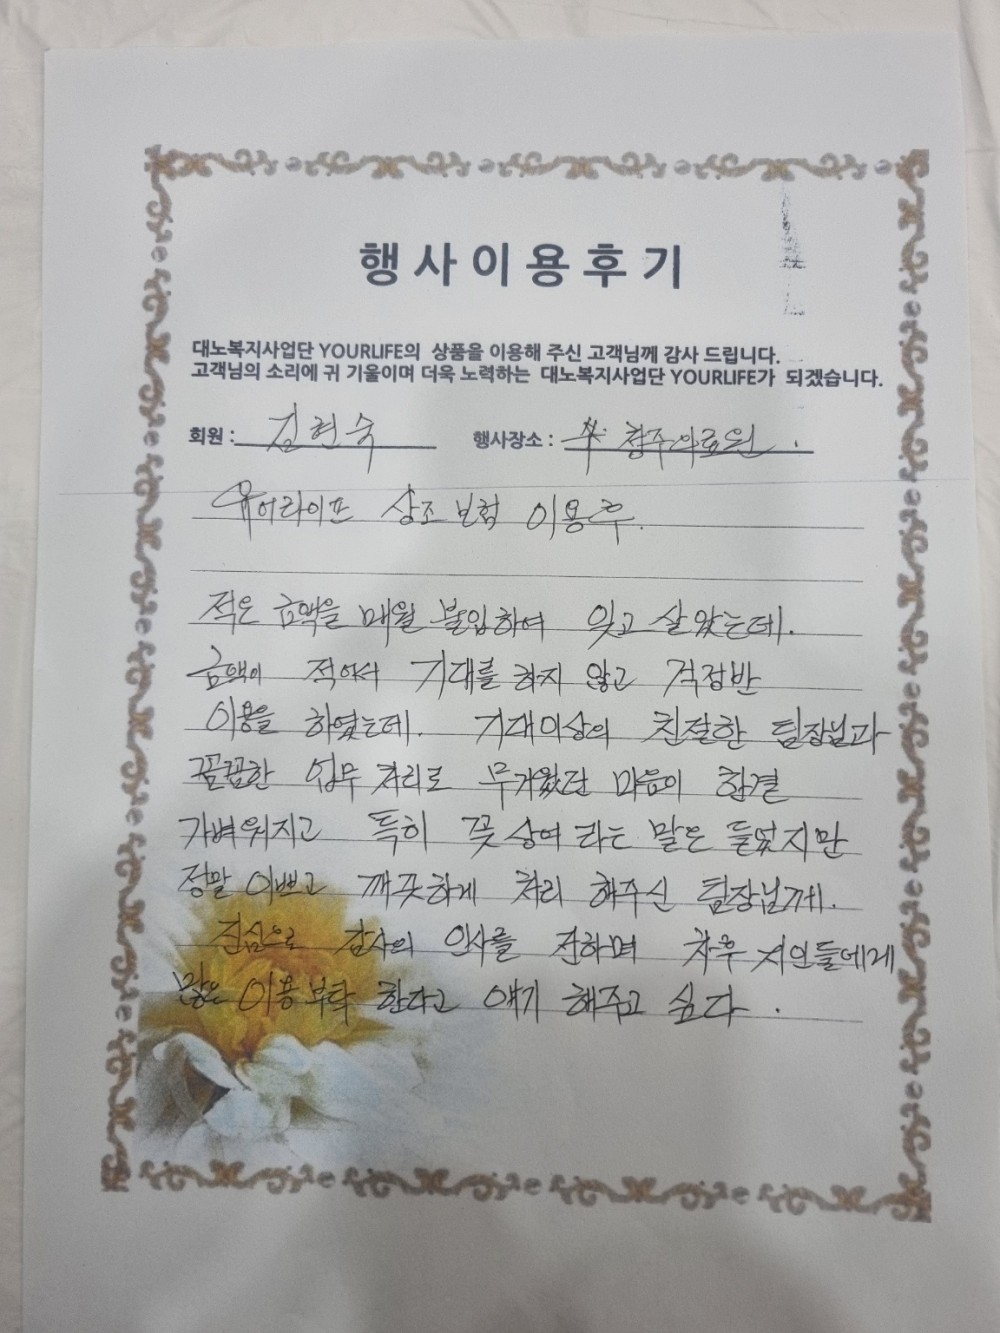 행사이용후기
대노복지사업단 YOURLIFE의 상품을 이용해 주신 고객님께 감사 드립니다.
고객님의 소리에 귀 기울이며 더욱 노력하는 대노복지사업단 YOURLIFE가 되겠습니다.
회원 : 김현숙 행사장소 : 청주의료원.
유어라이프 상조보험 이용후.
적은 금액을 매월 불입하여 잊고 살았는데.
금액이 적어서 기대를 하지 않고 걱정반
이용을 하였는데. 기대이상의 친절한 팀장님과
꼼꼼한 업무 처리로 무거웠던 마음이 한결
가벼워지고 특히 꽃상여 라는 말은 들었지만
정말 이쁘고 깨끗하게 처리 해주신 팀장님께.
진심으로 감사의 인사를 전하며 차후 지인들에게
많은 이용 부탁 한다고 얘기 해주고 싶다.